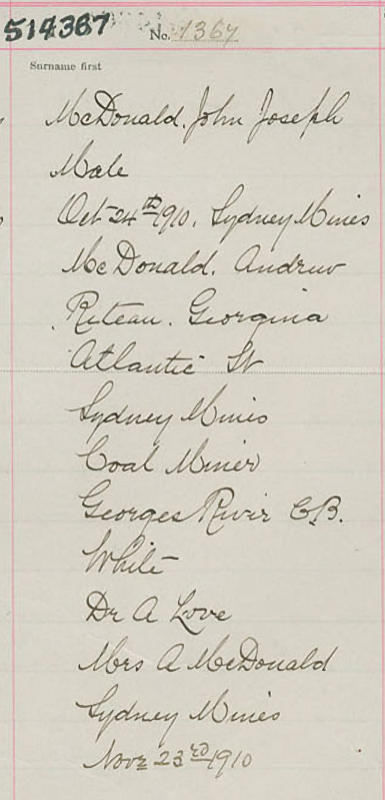 514367 No. 1367
Surname first
McDonald, John Joseph
Male
Oct 24th 1910, Sydney Mines
McDonald, Andrew
Riteau, Georgina
Atlantic St
Sydney Mines
Coal Miner
Georges River C.B.
White
Dr A Love
Mrs A McDonald
Sydney Mines
Nov 23rd 1910